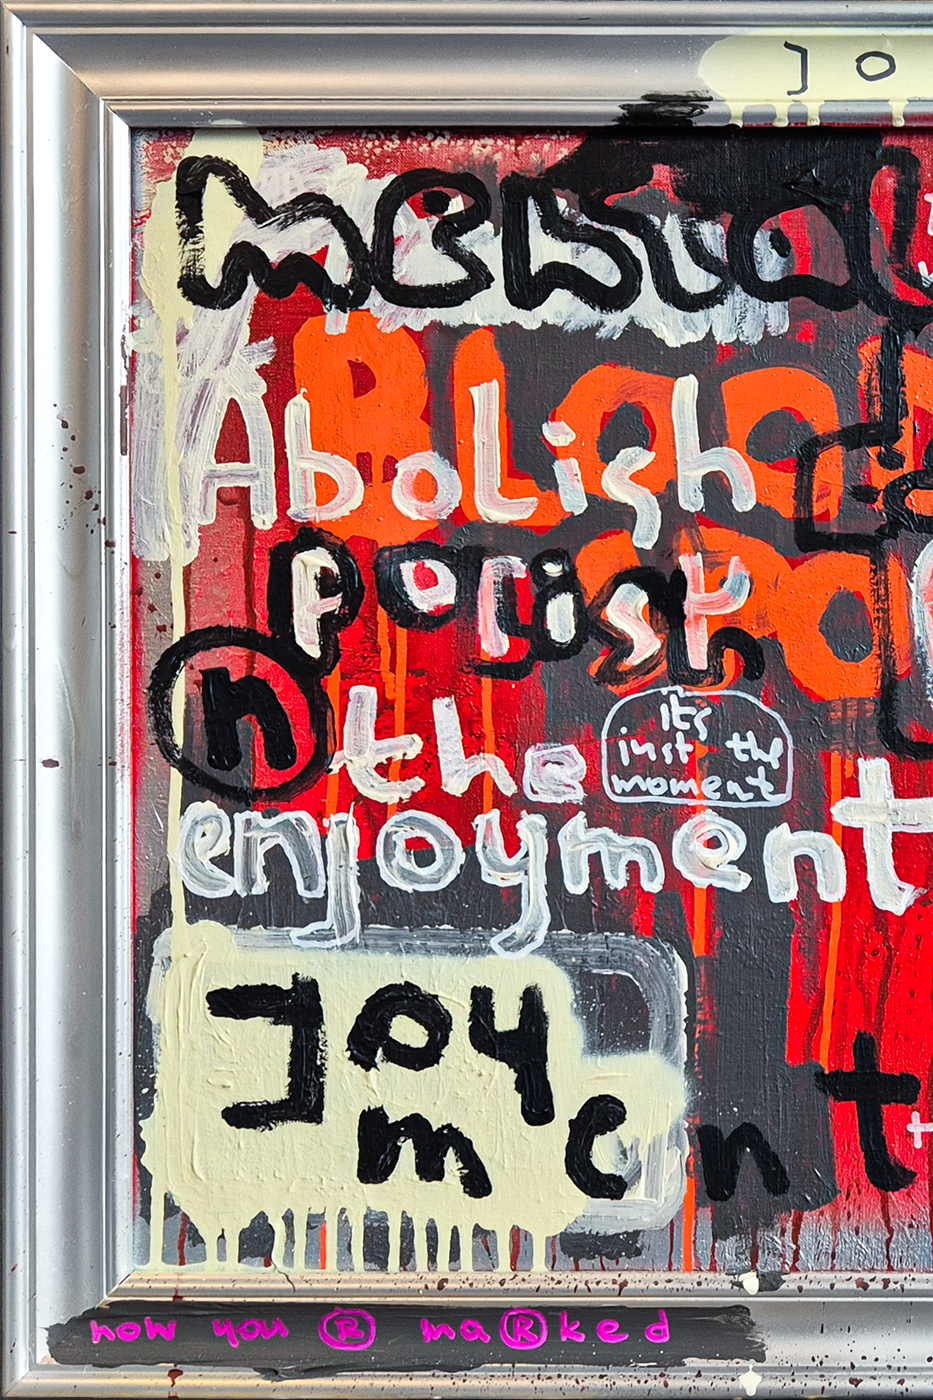 JO
Abolish
polish
n the
it's
just the
moment
enjoyment
Joy
ment
now you Ⓡ maⓇked